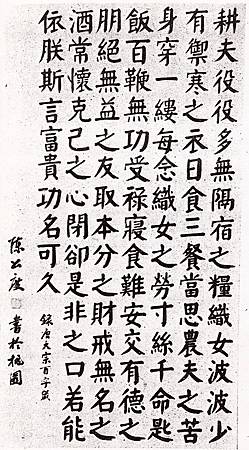 耕夫役役多無隔宿之糧織女波波少
有禦寒之衣日食三餐當思農夫之苦
身穿一縷每念織女之勞寸絲千命匙
飯百鞭無功受祿寢食難安交有德之
朋絕無益之友取本分之財戒無名之
酒常懷克己之心閉卻是非之口若能
依朕斯言富貴功名可久 錄唐太宗百字箴
陳公度 書於桃園